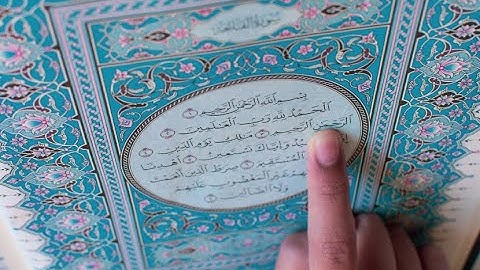 سورة الفاتحة
بِسْمِ اللَّهِ الرَّحْمَٰنِ الرَّحِيمِ
الْحَمْدُ لِلَّهِ رَبِّ الْعَٰلَمِينَ
الرَّحْمَٰنِ الرَّحِيمِ مَٰلِكِ يَوْمِ الدِّينِ
وَإِيَّاكَ نَسْتَعِينُ اهْدِنَا
الْمُسْتَقِيمَ صِرَٰطَ الَّذِينَ أَنْعَمْتَ
غَيْرِ الْمَغْضُوبِ عَلَيْهِمْ
وَلَا الضَّالِّينَ